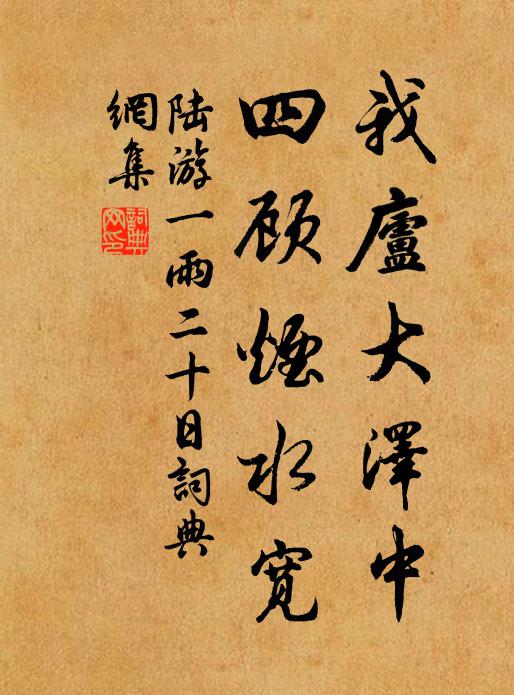 我廬大澤中
四顾煙水寬
陆游一雨二十日詞典
網集
詞典
網印